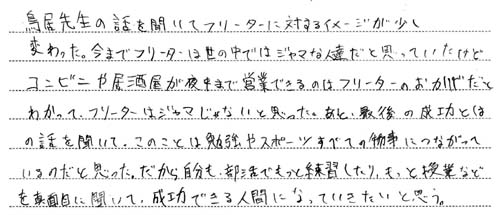 鳥居先生の話を聞いてフリーターに対するイメージが少し
変わった。今までフリーターは世の中ではジャマな人達だと思っていたけど
コンビニや居酒屋が夜中まで営業できるのはフリーターのおかげだと
わかって、フリーターはジャマじゃないと思った。あと、最後の成功とは
の話を聞いて、このことは勉強やスポーツすべての物事につながって
いるのだと思った。だから自分も、部活でもっと練習したり、もっと授業など
を真面目に聞いて、成功できる人間になっていきたいと思う。